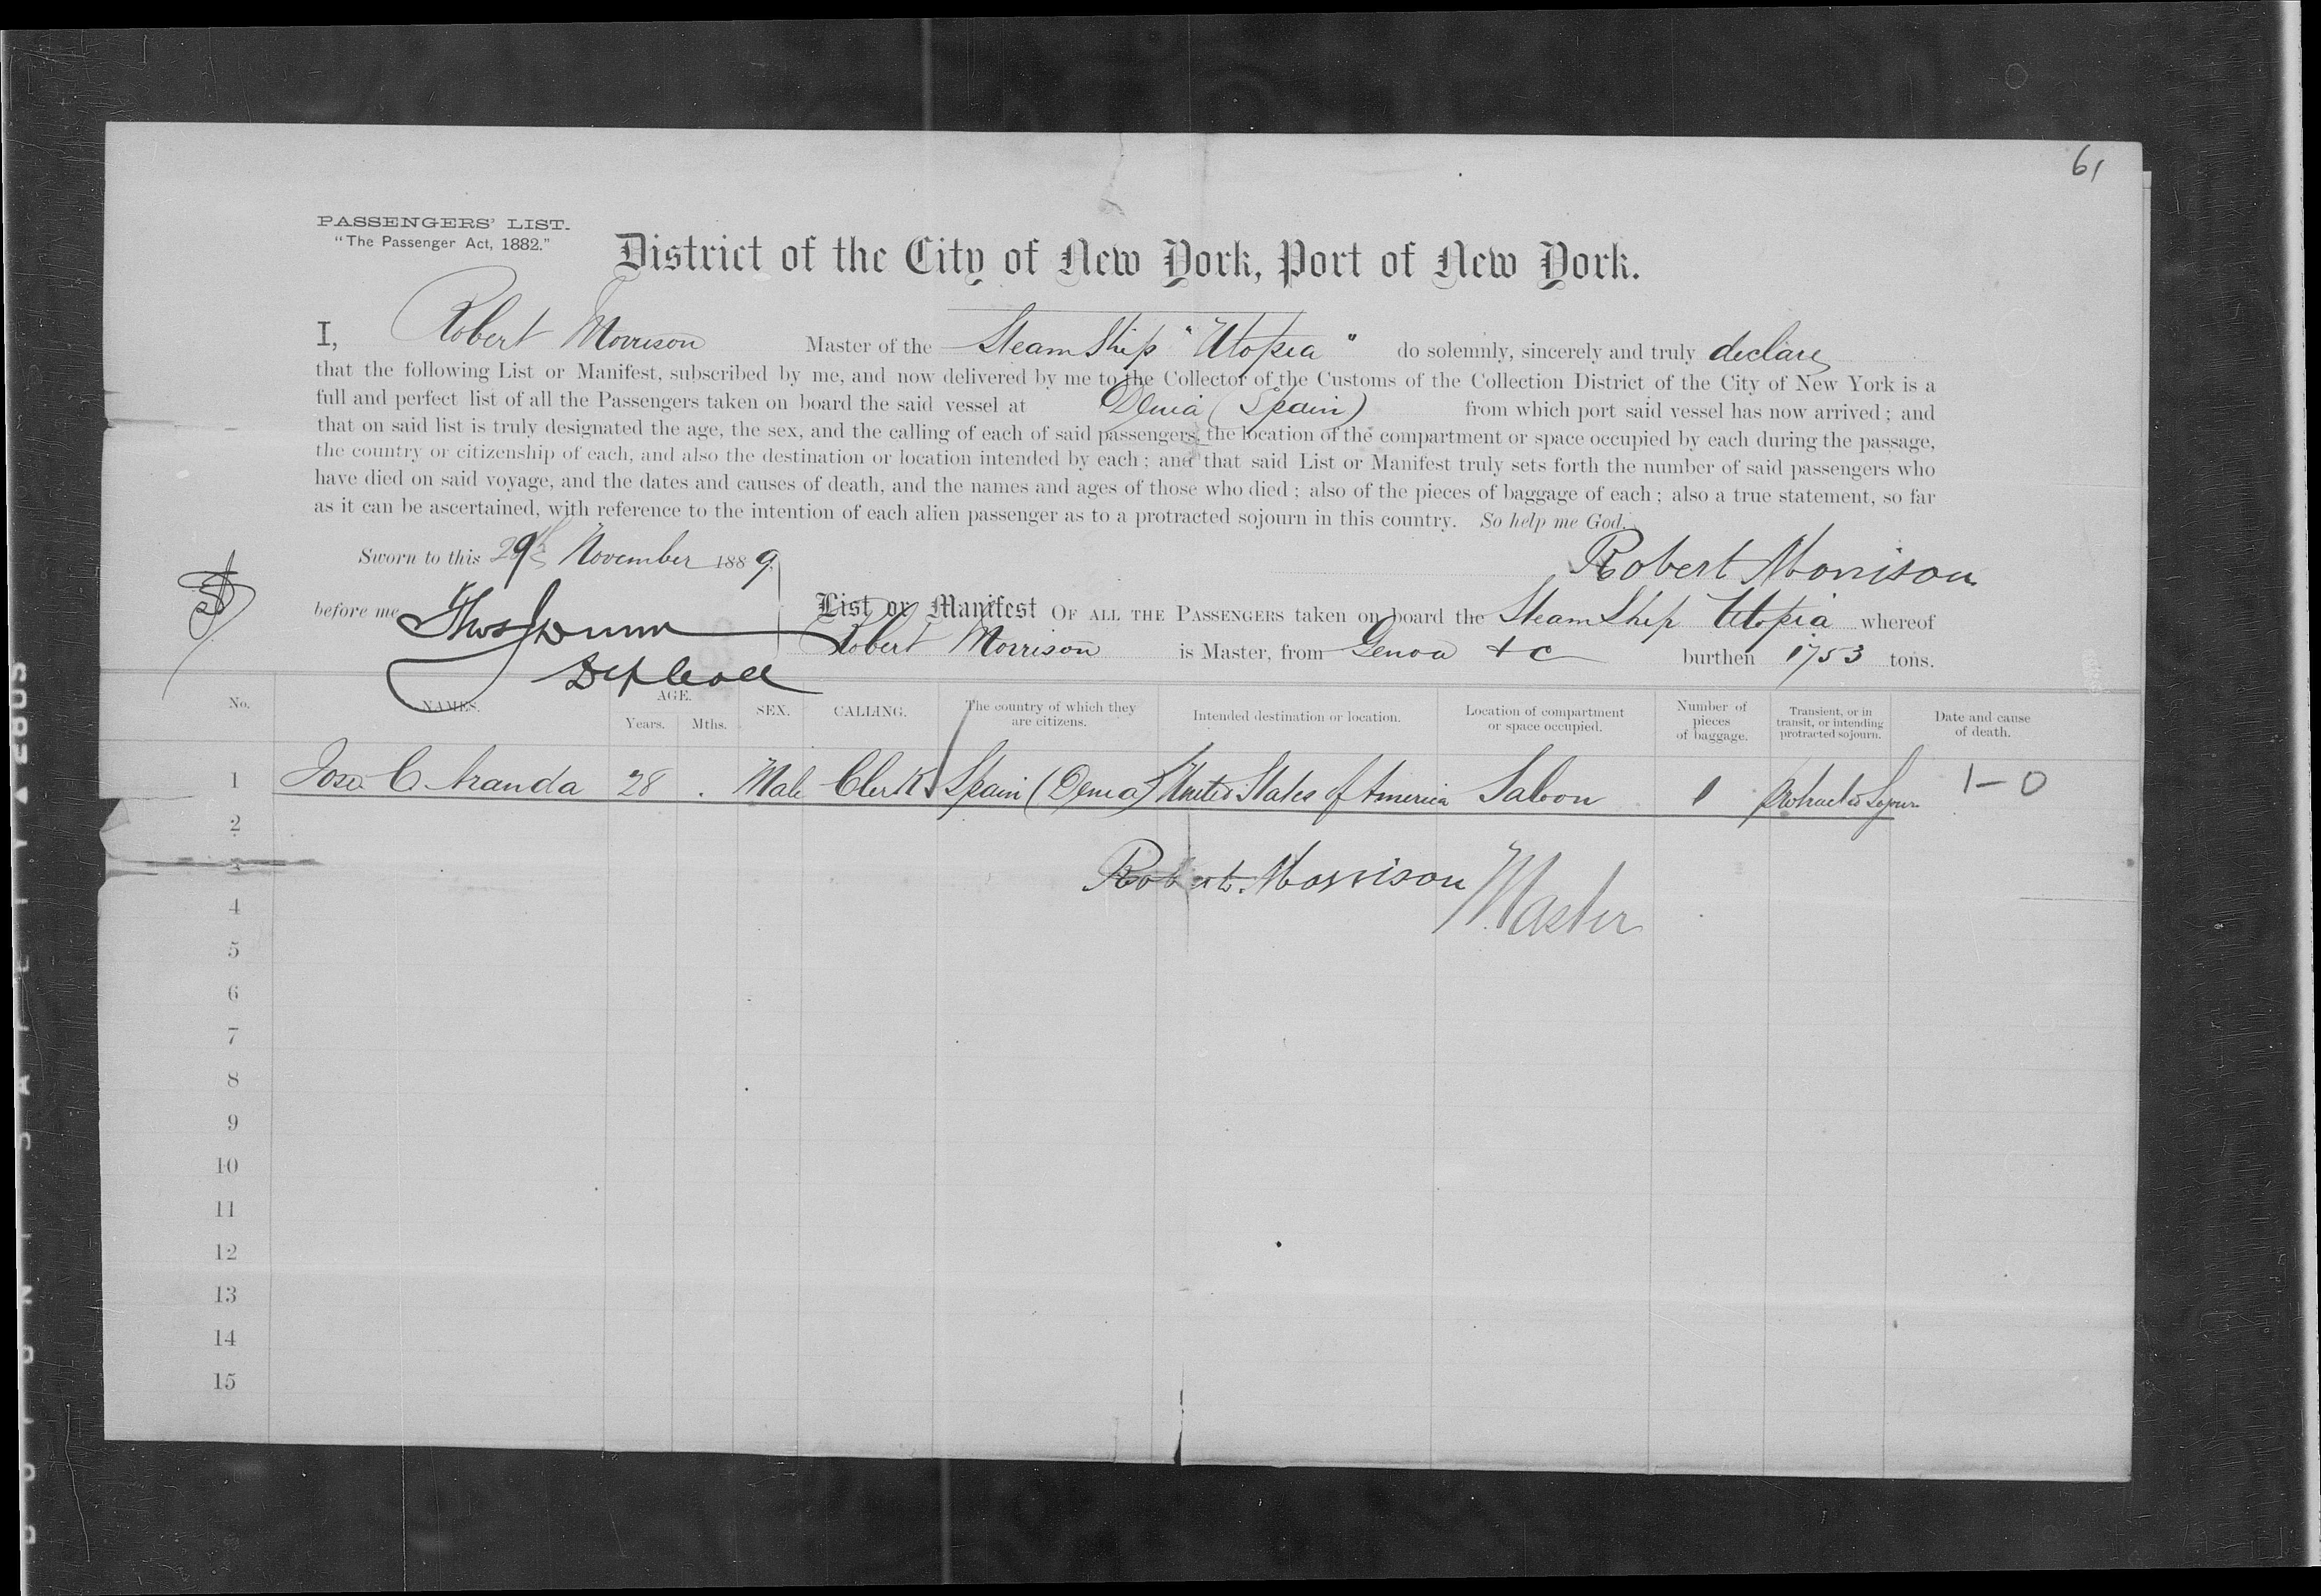 61
PASSENGERS' LIST.
"The Passenger Act, 1882."
District of the City of New York, Port of New York.
I, Robert Morrison Master of the Steam Ship "Utopia" do solemnly, sincerely and truly declare
that the following List or Manifest, subscribed by me, and now delivered by me to the Collector of the Customs of the Collection District of the City of New York is a
full and perfect list of all the Passengers taken on board the said vessel at Denia (Spain) from which port said vessel has now arrived; and
that on said list is truly designated the age, the sex, and the calling of each of said passengers, the location of the compartment or space occupied by each during the passage,
the country or citizenship of each, and also the destination or location intended by each; and that said List or Manifest truly sets forth the number of said passengers who
have died on said voyage, and the dates and causes of death, and the names and ages of those who died; also of the pieces of baggage of each; also a true statement, so far
as it can be ascertained, with reference to the intention of each alien passenger as to a protracted sojourn in this country. So help me God.
Sworn to this 29th November 1889 Robert Morrison
before me Thos Dunn List or Manifest OF ALL THE PASSENGERS taken on board the Steam Ship Utopia whereof
Dep Coll Robert Morrison is Master, from Genoa + c burthen 1753 tons.
No. NAMES. AGE. Years. Mths. SEX. CALLING. The country of which they are citizens. Intended destination or location. Location of compartment or space occupied. Number of pieces of baggage. Transient, or in transit, or intending protracted sojourn. Date and cause of death.
1 Jose C Aranda 28 . Male Clerk Spain (Denia) United States of America Saloon 1 Protracted Sojourn 1-0
2
3 Robert Morrison Master
4
5
6
7
8
9
10
11
12
13
14
15